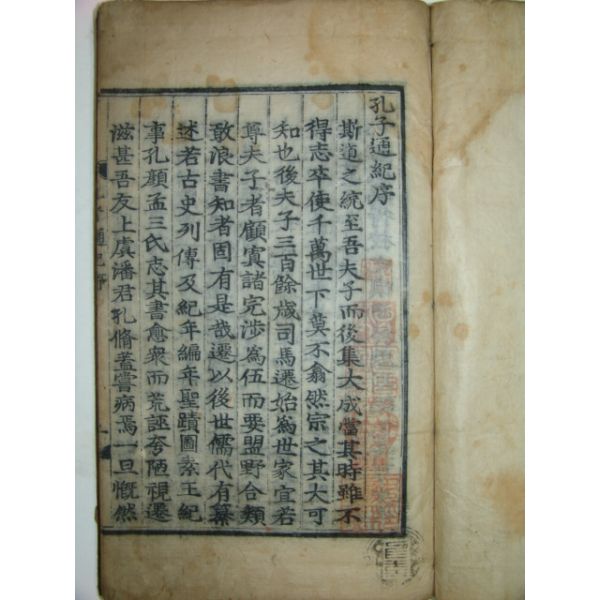 孔子通紀序
斯道之統至吾夫子而後集大成當其時雖不
得志卒使千萬世下莫不翕然宗之其大可
知也後夫子三百餘歲司馬遷始爲世家宜若
尊夫子者顧實諸完涉爲伍而要盟野合類
敢浪書知者固有是哉遷以後世儒代有纂
述若古史列傳及紀年編年聖蹟圖素王紀
事孔顔孟三氏志其書愈衆而荒誣夸陋視遷
滋甚吾友上虞潘君孔脩蓋嘗病焉一旦慨然